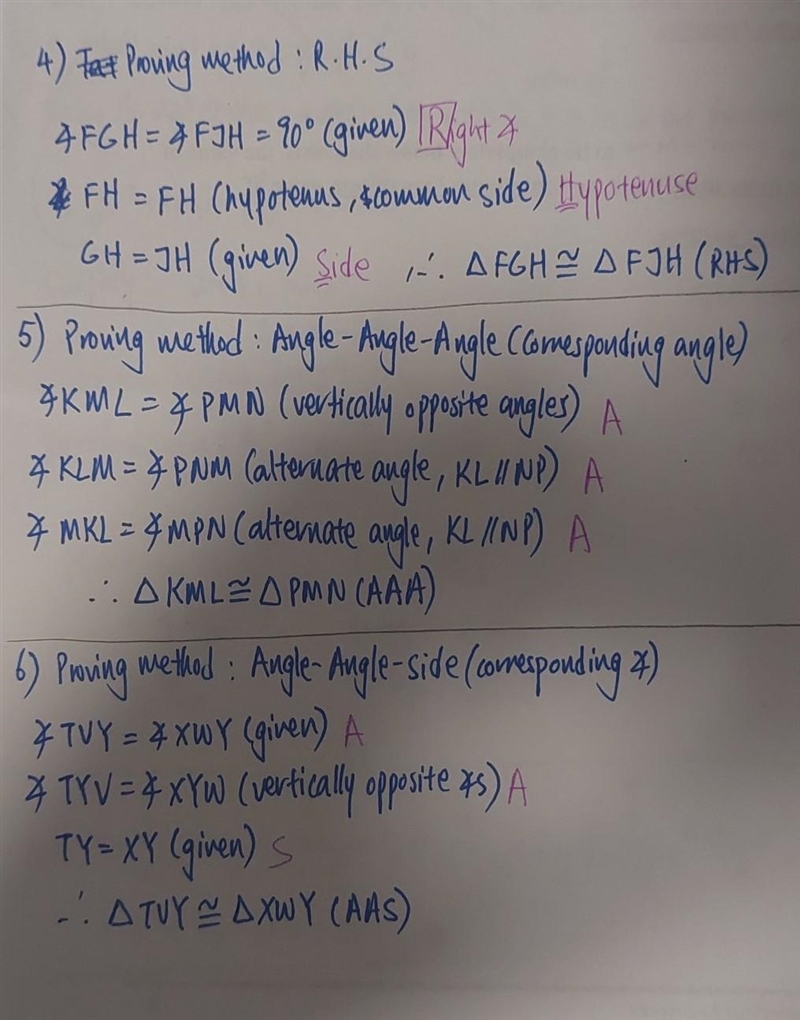 4) Proving method : R.H.S
∡FGH = ∡FJH = 90° (given) Right ∡
FH = FH (hypotenus, common side) Hypotenuse
GH = JH (given) Side ∴ △FGH ≅ △FJH (RHS)
5) Proving method : Angle-Angle-Angle (corresponding angle)
∡KML = ∡PMN (vertically opposite angles) A
∡KLM = ∡PNM (alternate angle, KL//NP) A
∡MKL = ∡MPN (alternate angle, KL//NP) A
∴ △KML ≅ △PMN (AAA)
6) Proving method : Angle-Angle-side (corresponding ∡)
∡TVY = ∡XWY (given) A
∡TYV = ∡XYW (vertically opposite ∡s) A
TY = XY (given) S
∴ △TVY ≅ △XWY (AAS)